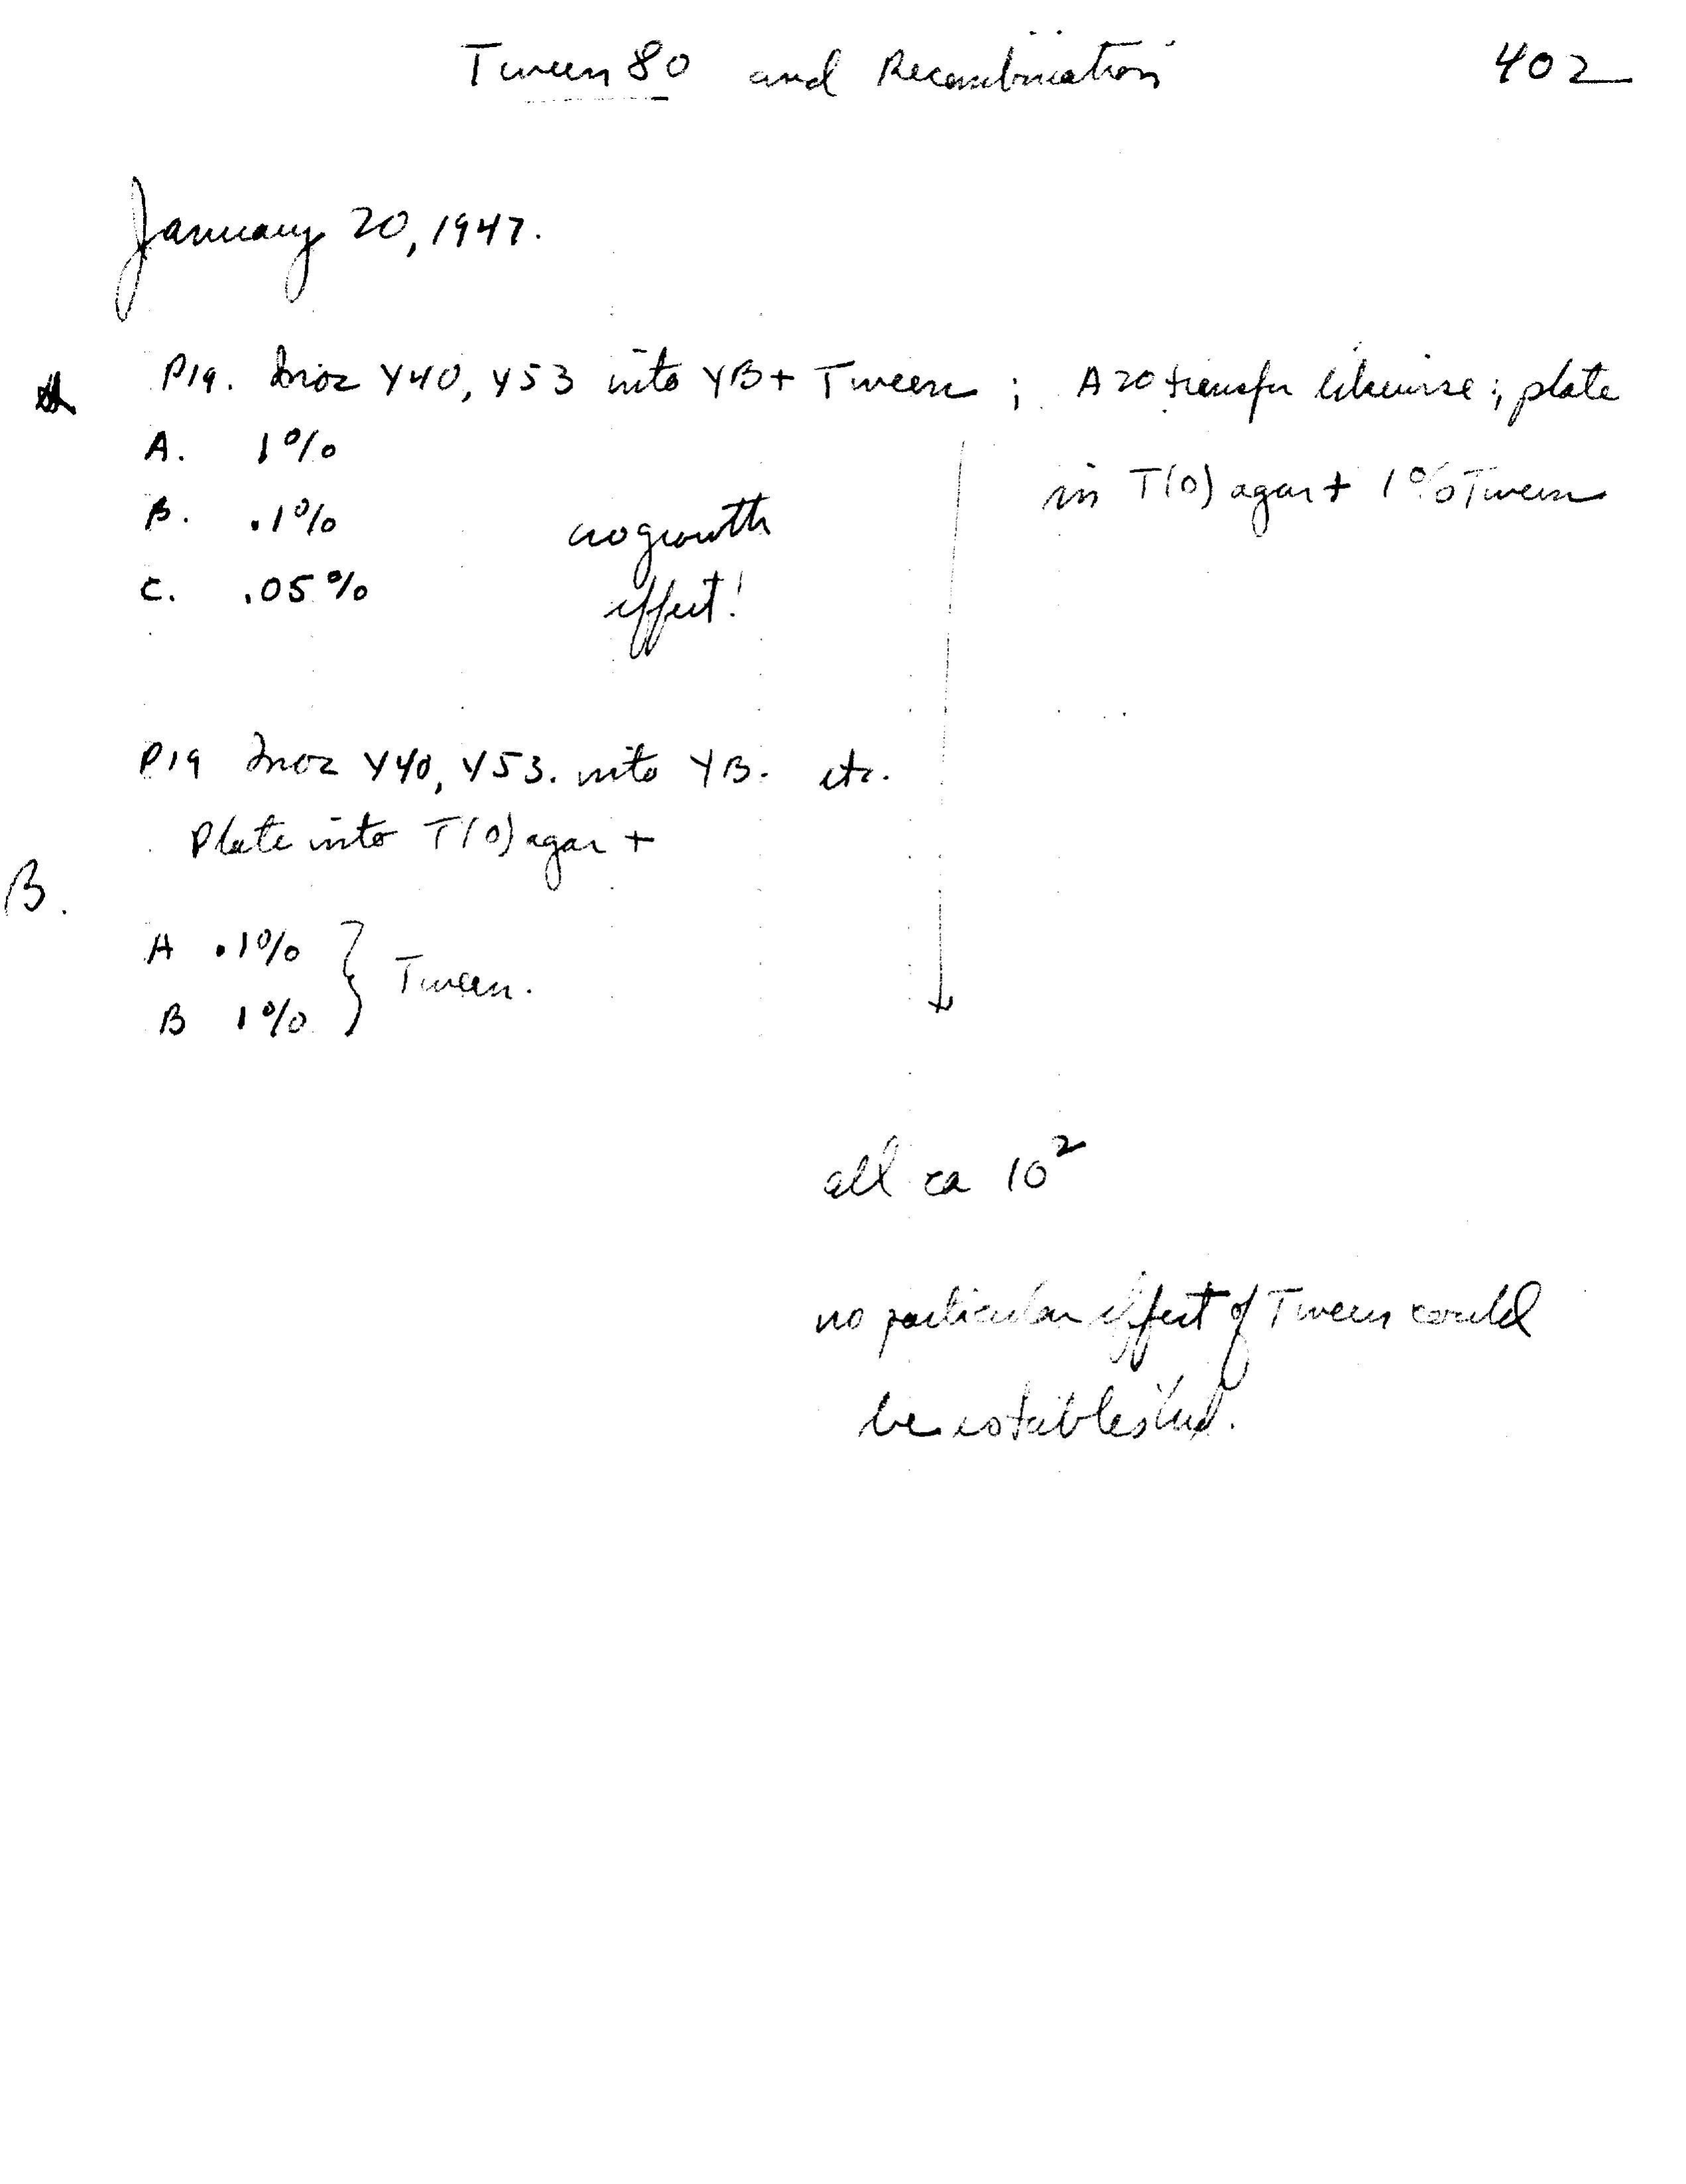 Tween 80 and Recombination 402
January 20, 1947.
P19. Inoc Y40, Y53 into YB + Tween ; A20 transfer likewise ; plate
in T(0) agar + 1% Tween
A. 1%
B. .1%
C. .05%
no growth
effect!
P19 Inoc Y40, Y53. into YB. etc.
Plate into T(0) agar +
B.
A .1%
B 1%
Tween.
all ca 10²
no particular effect of Tween could
be established.